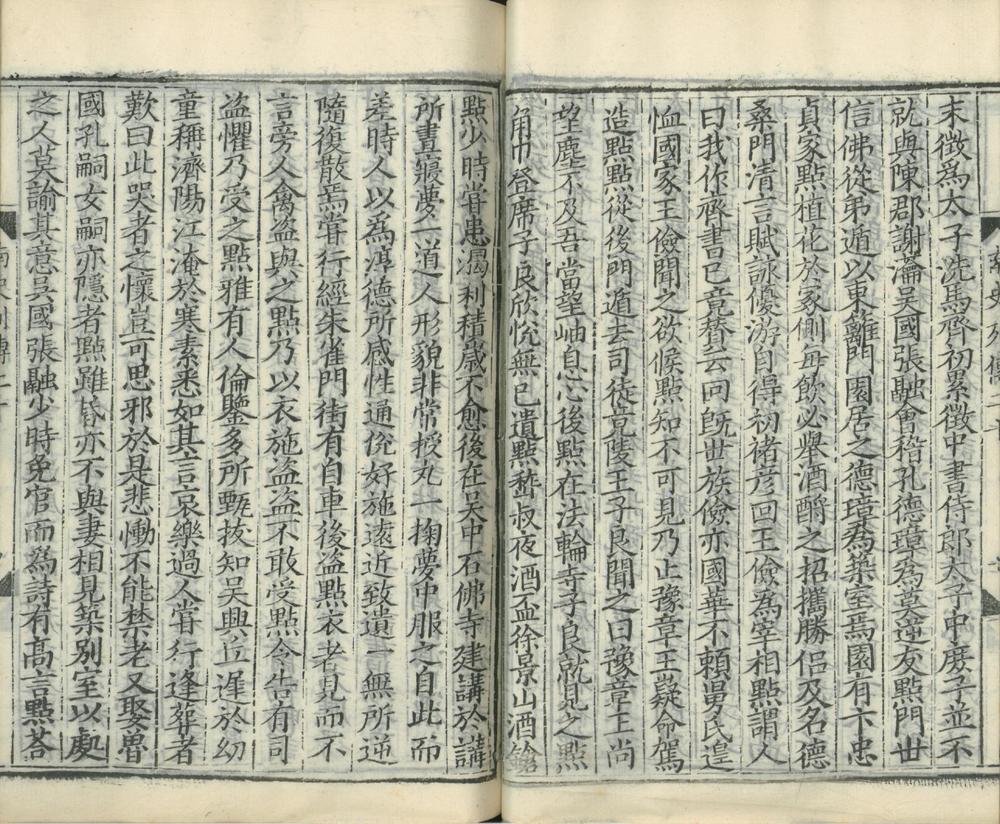 末徵爲太子洗馬齊初累徵中書侍郎太子中庶子並不
就與陳郡謝瀹吳國張融會稽孔德璋爲莫逆友點門世
信佛從弟遁以東籬門園居之德璋爲築室焉園有卞忠
貞冢點植花於冢側每飲必舉酒酹之招攜勝侶及名德
桑門清言賦詠優游自得初褚彦回王儉爲宰相點謂人
曰我作齊書已竟賛云回旣世族儉亦國華不頼舅氏遑
恤國家王儉聞之欲候點知不可見乃止豫章王嶷命駕
造點點從後門遁去司徒竟陵王子良聞之曰豫章王尚
望塵不及吾當望岫息心後點在法輪寺子良就見之點
角巾登席子良欣悅無已遺點嵇叔夜酒盃徐景山酒鎗
點少時甞患渴利積歲不愈後在吳中石佛寺建講於講
所晝寢夢一道人形貌非常授丸一掬夢中服之自此而
差時人以為淳德所感性通侻好施遠近致遺一無所逆
隨復散焉甞行經朱雀門街有自車後盜點衣者見而不
言旁人禽盜與之點乃以衣施盜盜不敢受點令告有司
盜懼乃受之點雅有人倫鑒多所甄拔知吳興丘遲於幼
童稱濟陽江淹於寒素悉如其言哀樂過人甞行逢葬者
歎曰此哭者之懷豈可思邪於是悲慟不能禁老又娶魯
國孔嗣女嗣亦隱者點雖昏亦不與妻相見築別室以處
之人莫諭其意吳國張融少時免官而爲詩有高言點荅